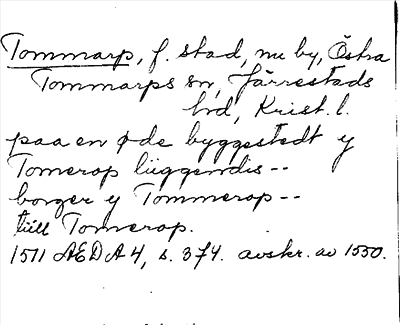 Tommarp, f. stad, nu by, Östra
Tommarps sn, Järrestads
hd, Krist. l.
paa en øde byggestedt y
Tomerop liiggendis --
borger y Tommerop --
tiill Tomerop.
1511 AEDA 4, s. 374. avskr. av 1550.